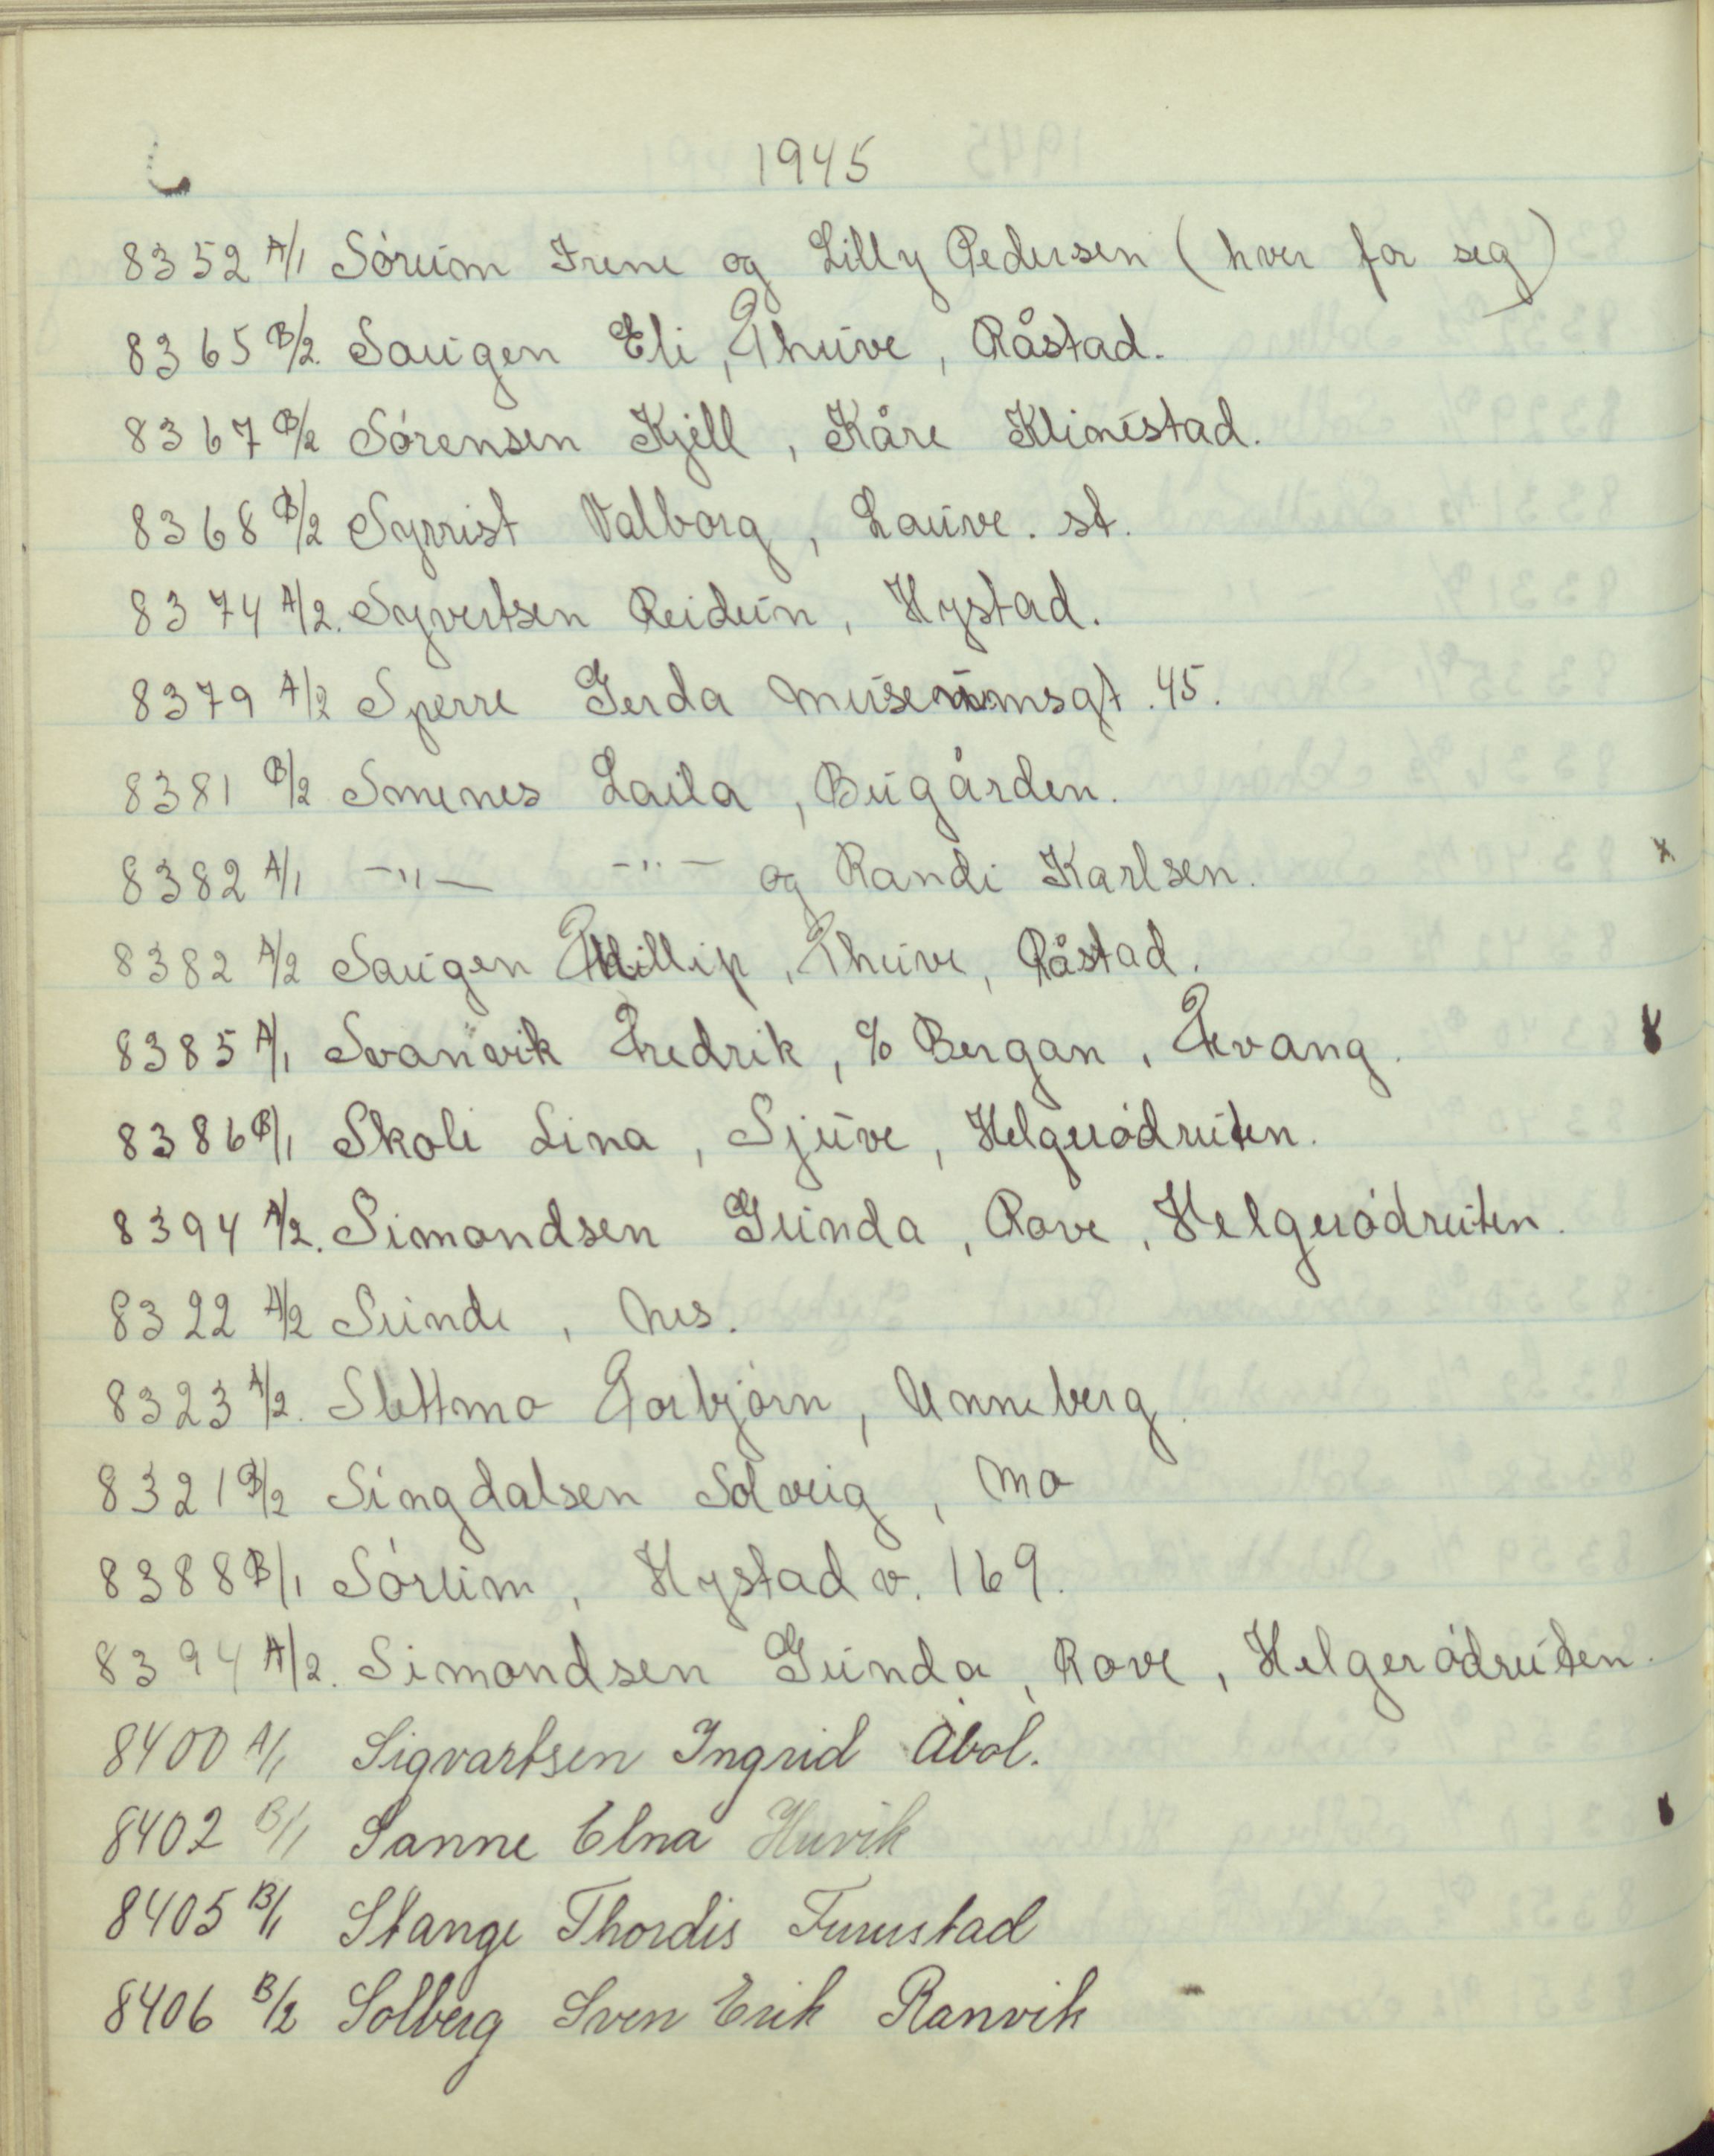 1945
8352 A/1 Sórum Irene og Lilly Pedersen (hver for seg)
8365 B/2. Saugen Eli, Thuve, Råstad.
8367 B/2 Sórensen Kjell, Kåre Klinestad.
8368 B/2 Syrrist Valborg, Lauve. st.
8374 A/2. Syvertsen Reidun, Hystad.
8379 A/2 Sperre Gerda Museumsgt. 45.
8381 B/2 Smenes Laila, Bugården.
8382 A/1 -"- -"- og Randi Karlsen.
8382 A/2 Saugen Phillip, Thuve, Råstad.
8385 A/1 Svanvik Fredrik, % Bergan, Fevang.
8386 B/1 Skoli Lina, Sjuve, Helgeródruten.
8394 A/2. Simondsen Gunda, Rove, Helgeródruten.
8322 A/2 Sunde, Nes.
8323 A/2. Slettmo Torbjórn, Unneberg.
8321 B/2 Singdalsen Solveig, Mo
8388 B/1 Sórum, Hystad v. 169.
8394 A/2. Simondsen Gunda, Rove, Helgeródruten.
8400 A/1 Sigvartsen Ingrid Åbol.
8402 B/1 Sanne Elna Huvik
8405 B/1 Stange Thordis Furustad
8406 B/2 Solberg Sven Erik Ranvik